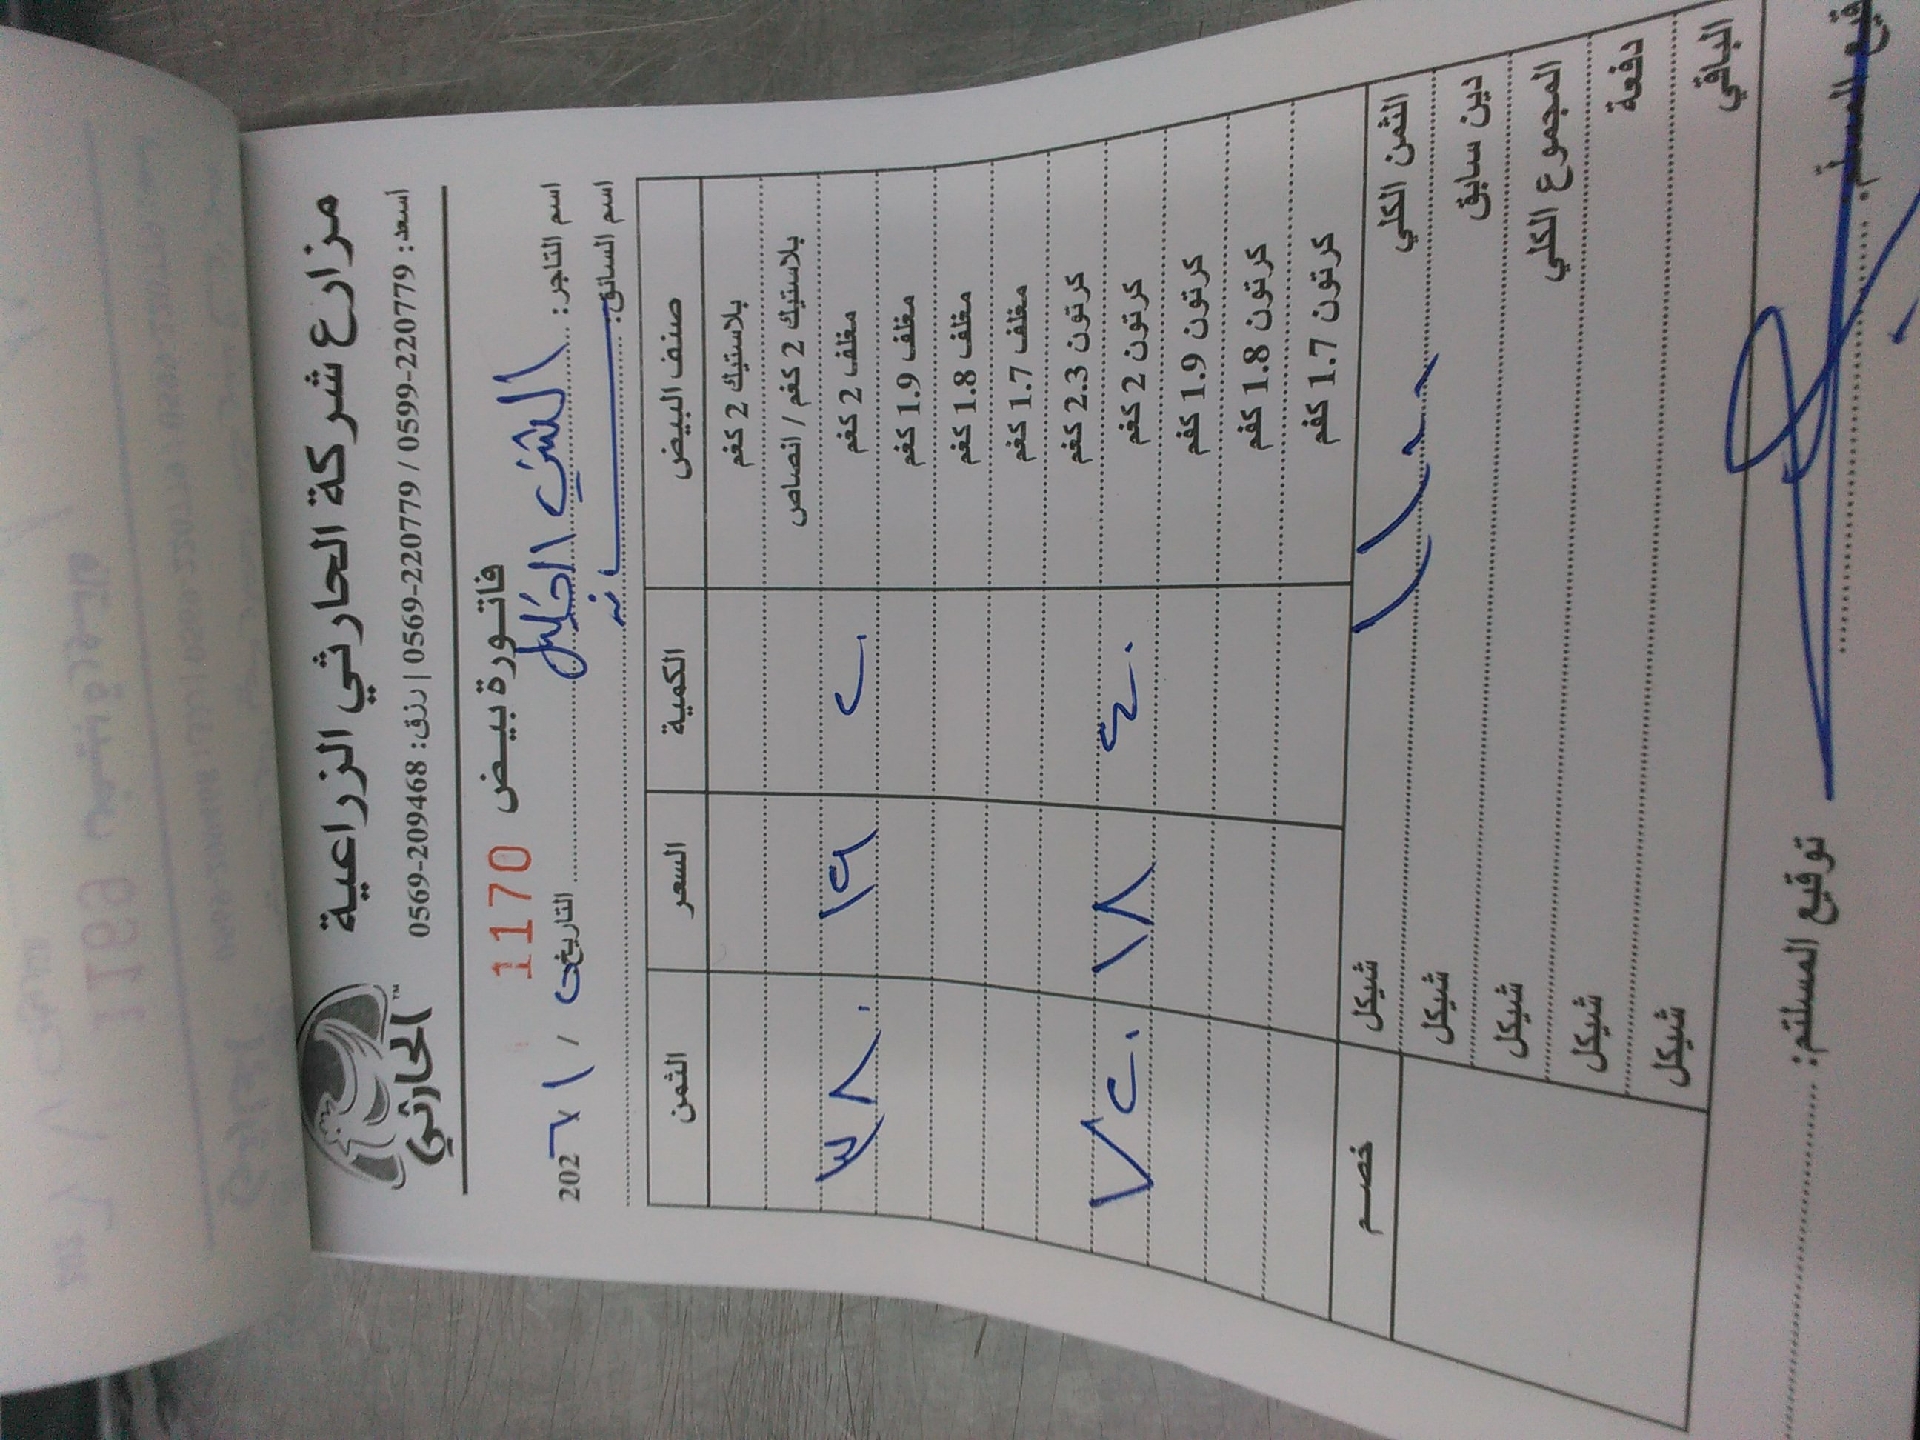 مزارع شركة الحارثي الزراعية
الحارثي
اسعد: 0599-220779 / 0569-220779 | رزق: 0569-209468
فاتورة بيض 1170
اسم التاجر: ........ التاريخ ٢ / ١ / 202٦
اسم السائق:
صنف البيض الكمية السعر الثمن
بلاستيك 2 كغم
بلاستيك 2 كغم / انصاص
مغلف 2 كغم ٢٠ ١٩ ٣٨٠
مغلف 1.9 كغم
مغلف 1.8 كغم
مغلف 1.7 كغم
كرتون 2.3 كغم
كرتون 2 كغم ٤٠ ١٨ ٧٢٠
كرتون 1.9 كغم
كرتون 1.8 كغم
كرتون 1.7 كغم
الثمن الكلي ١١٠٠ شيكل خصم
دين سابق شيكل
المجموع الكلي شيكل
دفعة شيكل
الباقي شيكل
توقيع المسلم: توقيع المستلم: